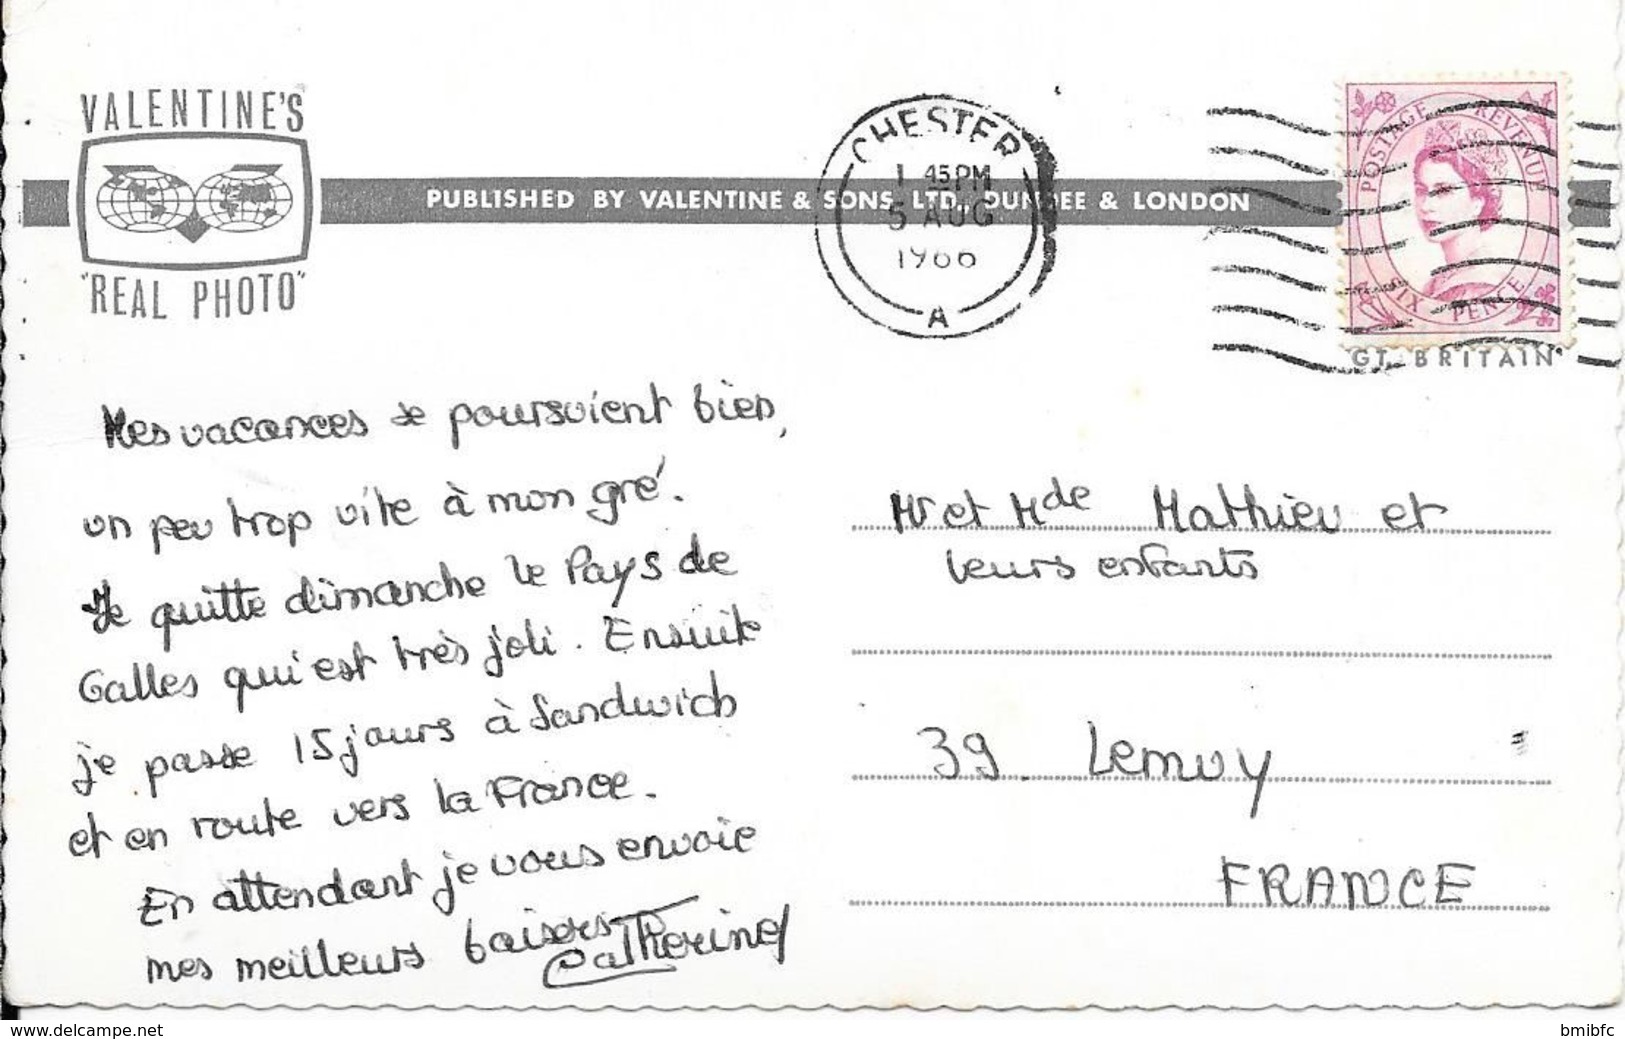 VALENTINE'S
"REAL PHOTO"
PUBLISHED BY VALENTINE & SONS, LTD., DUNDEE & LONDON
CHESTER
1 45 PM
5 AUG
1966
A
POSTAGE REVENUE
SIX PENCE
GT. BRITAIN
Mes vacances se poursuivent bien,
un peu trop vite à mon gré.
Je quitte dimanche le Pays de
Galles qui est très joli. Ensuite
je passe 15 jours à Sandwich
et en route vers la France.
En attendant je vous envoie
mes meilleurs baisers
Catherine
Mr et Mde Mathieu et
leurs enfants
39. Lemuy
FRANCE
www.delcampe.net
bmibfc